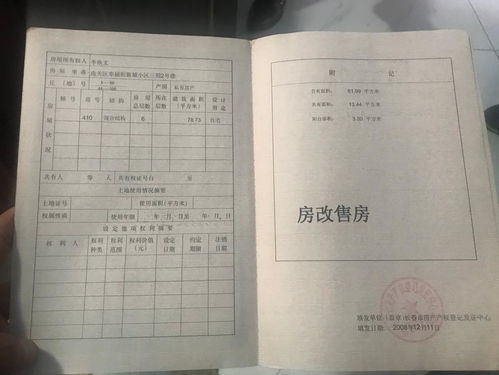 房屋所有权人
房屋坐落 南关区幸福街新城小区三期2号楼
丘(地)号
产别 私有房产
房屋状况
幢号 房号 结构 房屋总层数 所在层数 建筑面积(平方米) 设计用途
410 混合结构 6 78.73 住宅
共有人 等 人 共有权证号自 至
土地使用情况摘要
土地证号 使用面积(平方米)
权属性质 使用年限 年 月 日至 年 月 日
设定他项权利摘要
权利人 权利种类 权利范围 权利价值(元) 设定日期 约定期限 注销日期
附 记
自有面积: 61.99 平方米
共有面积: 13.44 平方米
阳台面积: 平方米
房改售房
填发单位:(盖章)长春市房产产权登记发证中心
填发日期: 2008年12月11日